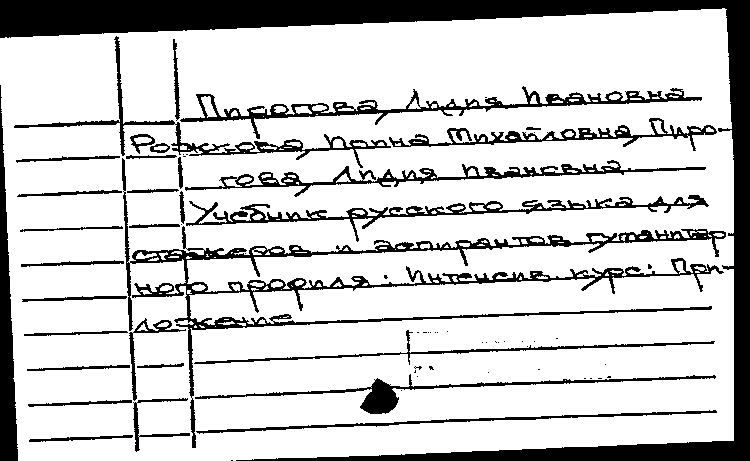 Пирогова, Лидия Ивановна
Рожкова, Ирина Михайловна, Пиро-
гова, Лидия Ивановна.
Учебник русского языка для
стажеров и аспирантов гуманитар-
ного профиля: Интенсив. курс: При-
ложение